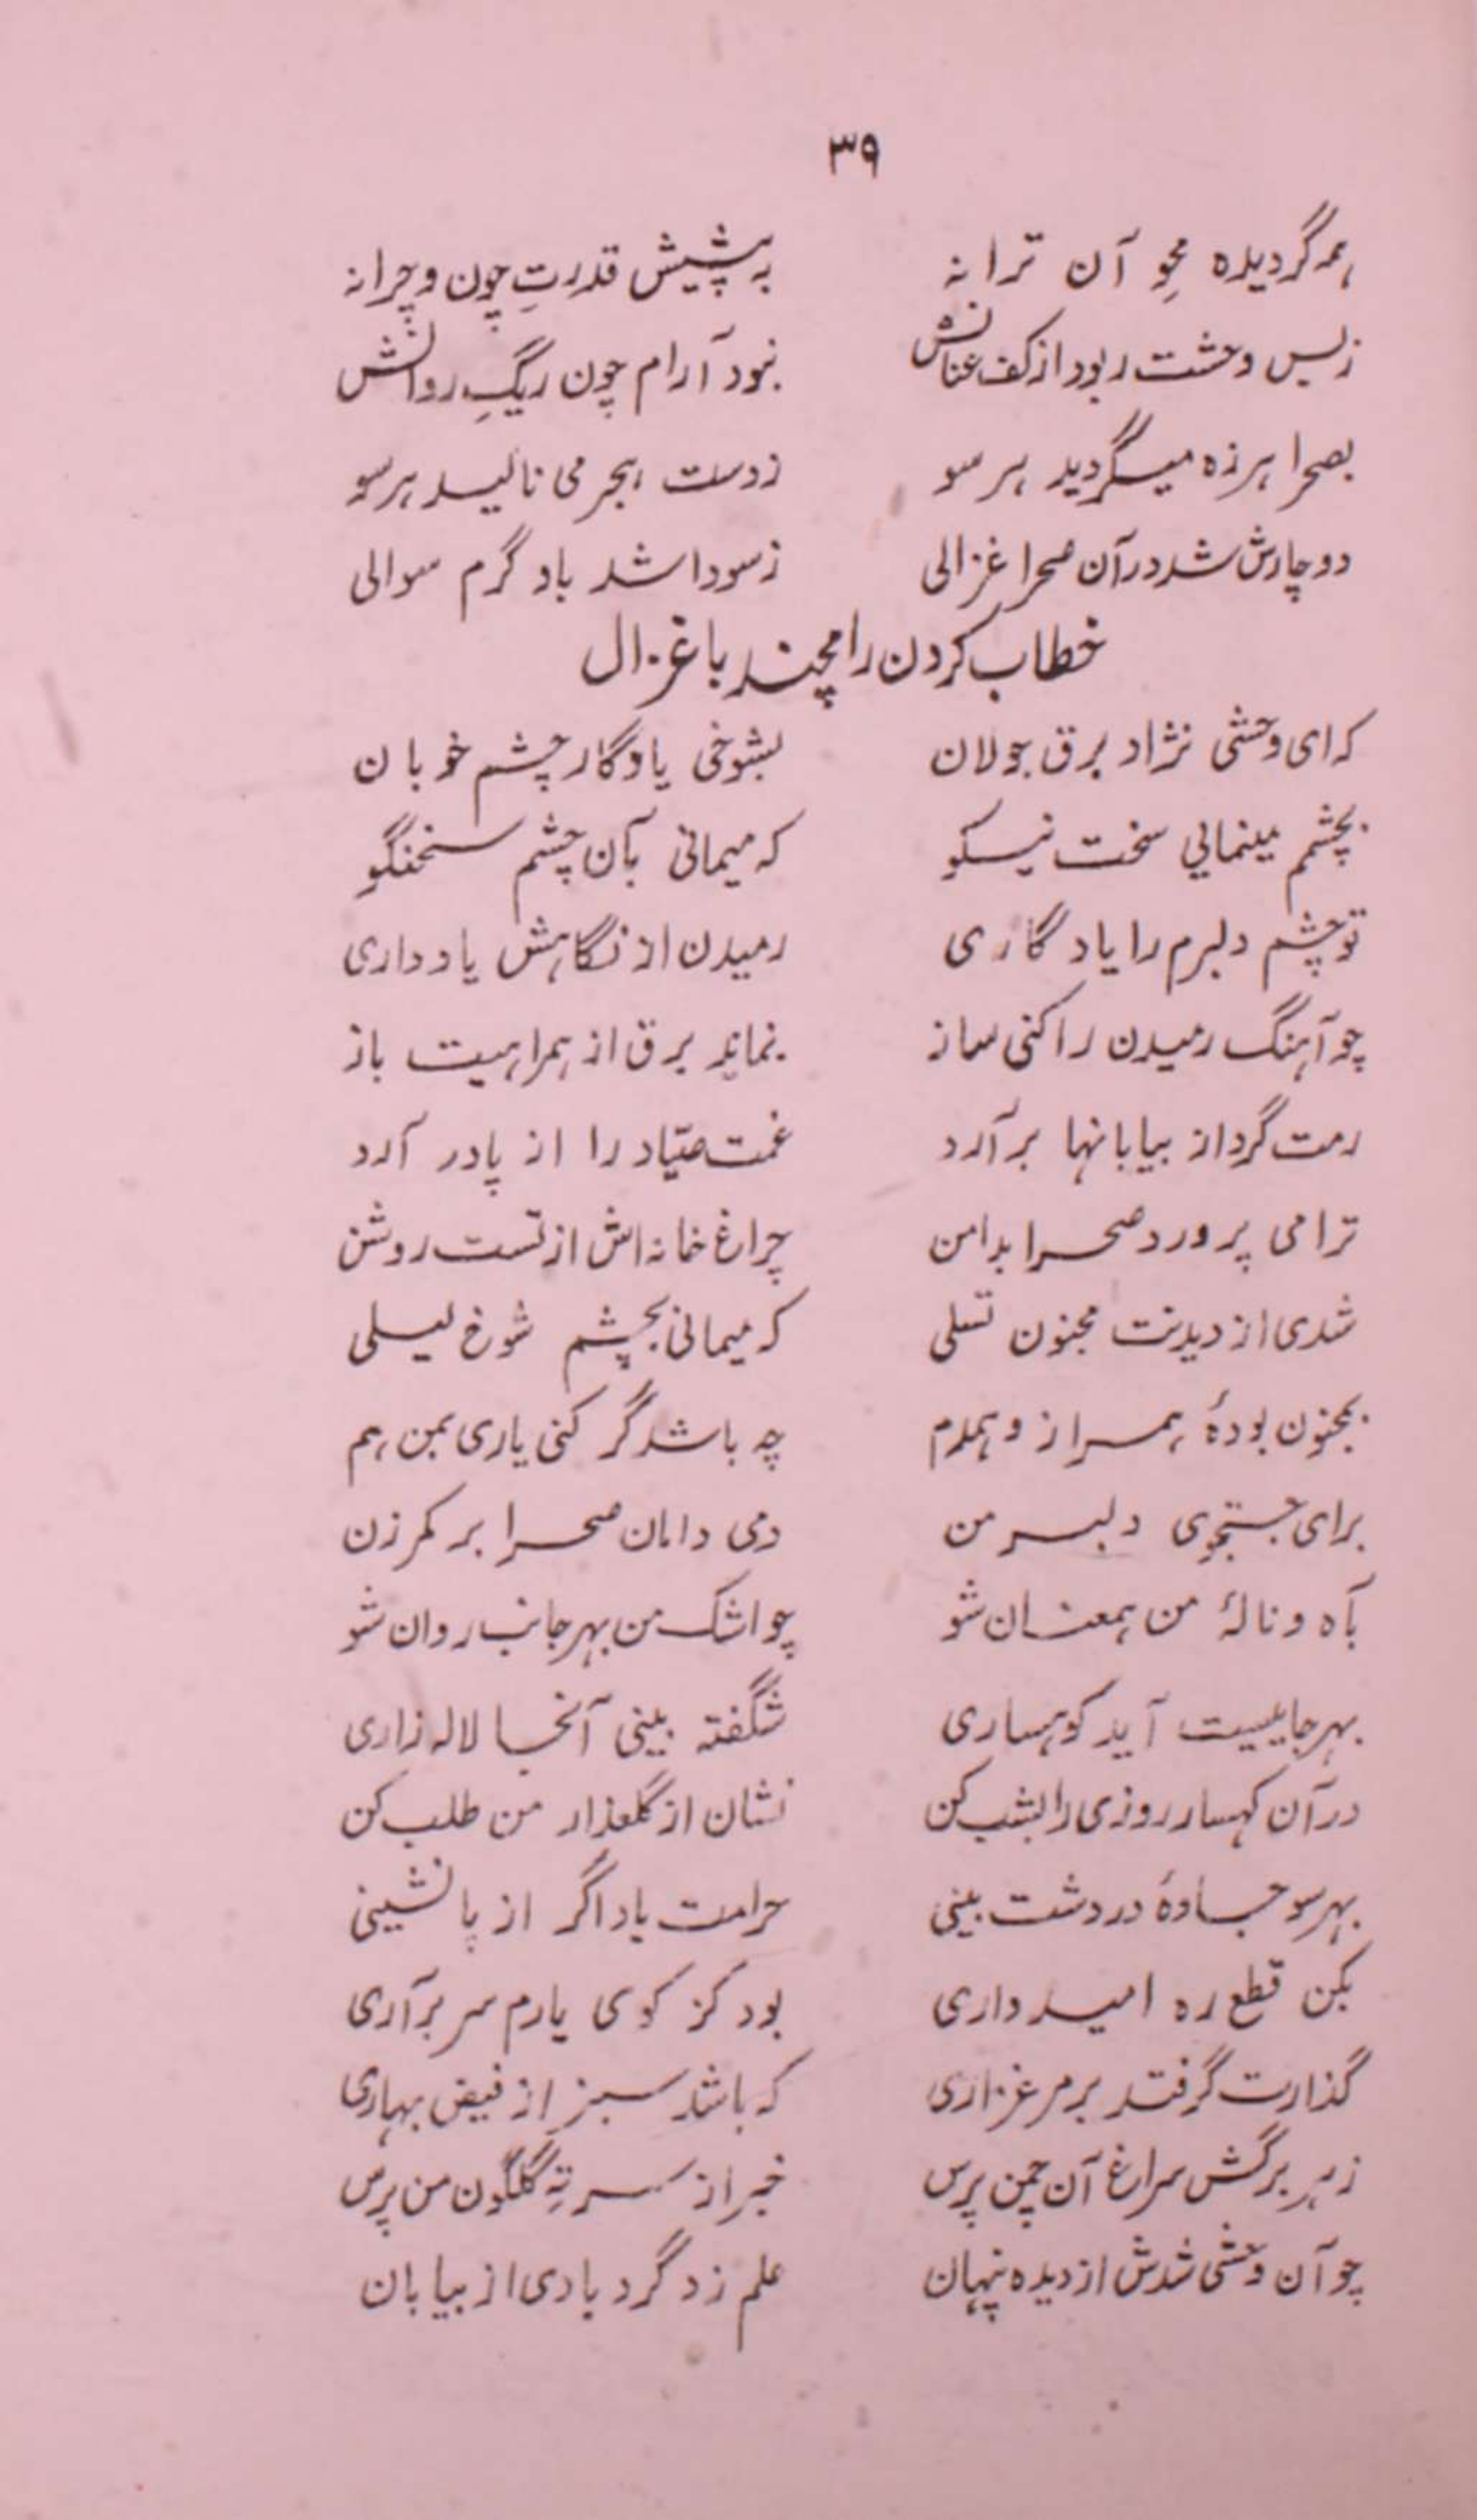 ۳۹
ہمہ گردیدہ محوِ آن ترانہ بہ پیشِ قدرتِ چون و چرا نہ
زبس وحشت ربود از کف عنانش نبود آرام چون ریگِ روانش
بصحرا ہرزہ میگردید ہر سو زدست ہجر می نالید ہر سو
دوچارش شد در آن صحرا غزالی زسودا شد باو گرم سوالی
خطاب کردن رامچند با غزال
کہ ای وحشی نژاد برق جولان بشوخی یادگار چشم خوبان
بچشمم مینمایی سخت نیکو کہ میمانی بآن چشم سخنگو
تو چشم دلبرم را یادگاری رمیدن از نگاہش یاد داری
چو آہنگ رمیدن را کنی ساز نماند برق از ہمراہیت باز
رمت گرد از بیابانہا برآرد غمت صیّاد را از پا در آرد
ترا می پرورد صحرا بدامن چراغ خانہ اش از تست روشن
شدی از دیدنت مجنون تسلی کہ میمانی بچشم شوخ لیلی
بمجنون بودۂ ہمراز و ہمدم چہ باشد گر کنی یاری بمن ہم
برای جستجوی دلبر من دمی دامان صحرا بر کمر زن
بآہ و نالۂ من ہمعنان شو چو اشک من بہر جانب روان شو
بہر جاییت آید کوہساری شگفتہ بینی آنجا لالہ زاری
در آن کہسار روزی را بشب کن نشان از گلعذار من طلب کن
بہر سو جادۂ در دشت بینی حرامت باد اگر از پا نشینی
بکن قطع رہ امیدواری بود کز کوی یارم سر برآری
گذارت گر فتد بر مرغزاری کہ باشد سبز از فیض بہاری
زہر برگش سراغ آن چمن پرس خبر از سرتہِ گلگون من پرس
چو آن وحشی شدش از دیدہ پنہان علم زد گردبادی از بیابان